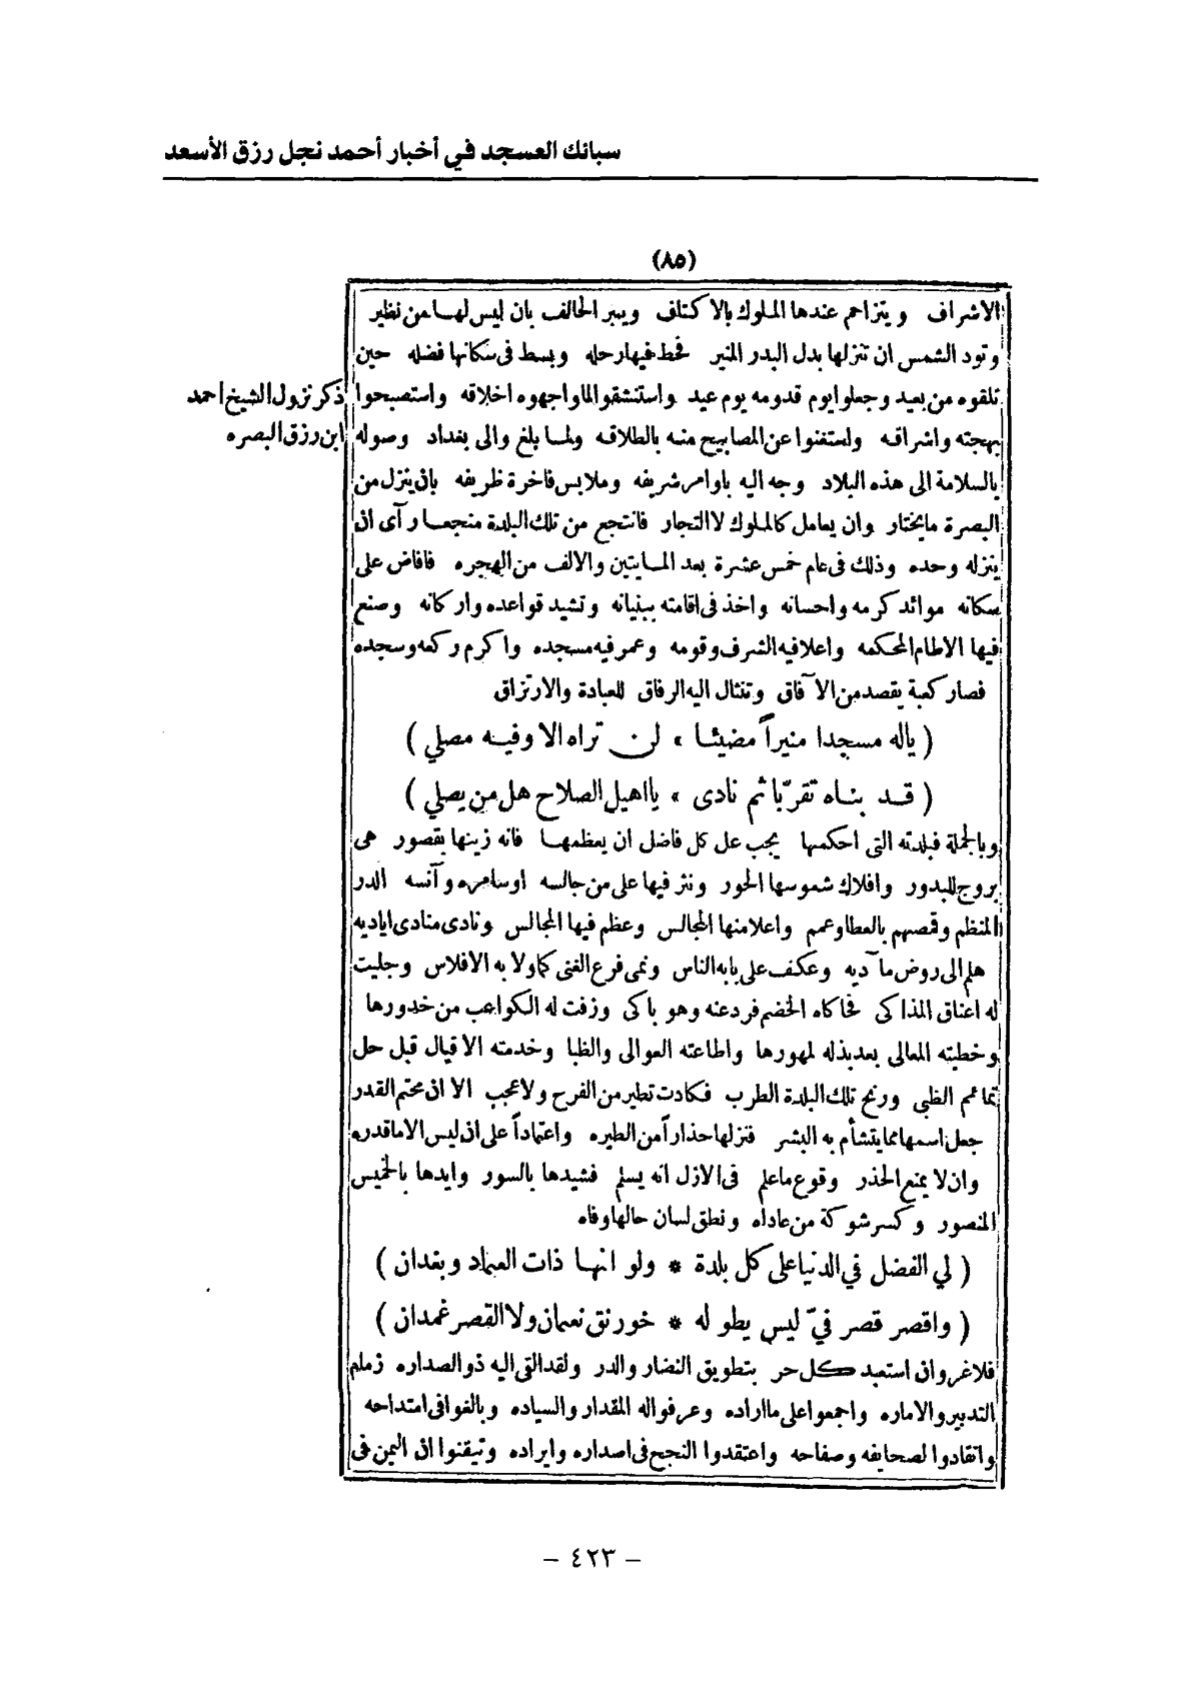 سبائك العسجد في أخبار أحمد نجل رزق الأسعد
(٨٥)
الاشراف ويتزاحم عندها الملوك بالاكتاف ويبر الحالف بان ليس لها من نظير
وتود الشمس ان تنزلها بدل البدر المنير فحط فيها رحله وبسط فى سكانها فضله حين
تلقوه من بعيد وجعلوا يوم قدومه يوم عيد واستنشقوا لما واجهوه اخلاقه واستصبحوا
ذكر نزول الشيخ احمد
بهجته واشراقه واستغنوا عن المصابيح منه بالطلاقه ولما بلغ والى بغداد وصوله
ابن رزق البصره
بالسلامة الى هذه البلاد وجه اليه باوامر شريفه وملابس فاخرة ظريفه بان ينزل من
البصرة ما يختار وان يعامل كالملوك لا التجار فانتجع من تلك البلدة منجعا رآى ان
ينزله وحده وذلك فى عام خمس عشرة بعد المايتين والالف من الهجره فافاض على
سكانه موائد كرمه واحسانه واخذ فى اقامته ببنيانه وتشيد قواعده واركانه وصنع
فيها الاطام المحكمه واعلا فيه الشرف وقومه وعمر فيه مسجده واكرم ركعه وسجده
فصار كعبة يقصد من الآفاق وتنثال اليه الرفاق للعبادة والارتزاق
( ياله مسجدا منيراً مضيئا ، لن تراه الا وفيه مصلي )
( قد بناه تقرّبا ثم نادى ، يا اهيل الصلاح هل من يصلي )
وبالجملة فبلدته التى احكمها يجب عل كل فاضل ان يعظمها فانه زينها بقصور هى
بروج للبدور وافلاك شموسها الحور ونثر فيها على من جالسه اوسامره وآنسه الدر
المنظم وقمصهم بالعطا وعمم واعلا منها المجالس وعظم فيها المجالس ونادى منادى اياديه
هلم الى روض مآديه وعكف على بابه الناس ونمى فرع الغنى كما ولا به الافلاس وجليت
له اعناق المذاكى فحاكاه الخضم فردعنه وهو باكى وزفت له الكواعب من خدورها
وخطبته المعالى بعد بذله لمهورها واطاعته العوالى والظبا وخدمته الاقيال قبل حل
تمائم الظبى ورنح تلك البلدة الطرب فكادت تطير من الفرح ولا عجب الا ان محتم القدر
جعل اسمها مما يتشأم به البشر فنزلها حذاراً من الطيره واعتماداً على ان ليس الا ما قدره
وان لا يمنع الحذر وقوع ما علم فى الازل انه يسلم فشيدها بالسور وايدها بالخميس
المنصور وكسر شوكة من عاداه ونطق لسان حالها وفاه
( لي الفضل في الدنيا على كل بلدة * ولو انها ذات العماد وبغدان )
( واقصر قصر فيّ ليس يطوله * خورنق نعمان ولا القصر غمدان )
فلا غرو ان استعبد كل حر بتطويق النضار والدر ولقد القى اليه ذو الصداره زمام
التدبير والاماره واجمعوا على ما اراده وعرفوا له المقدار والسياده وبالغوا فى امتداحه
وانقادوا لصحايفه وصفاحه واعتقدوا النجح فى اصداره وايراده وتيقنوا ان اليمن فى
- ٤٢٣ -